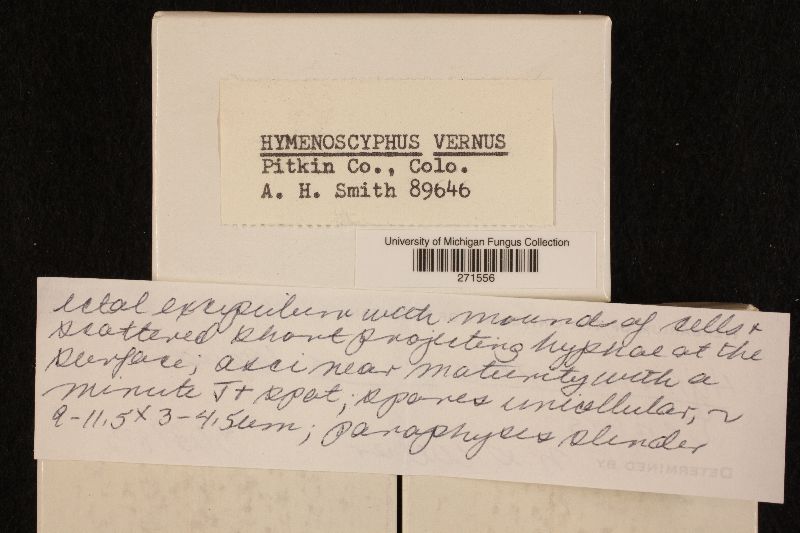 HYMENOSCYPHUS VERNUS
Pitkin Co., Colo.
A. H. Smith 89646
University of Michigan Fungus Collection
271556
ectal excipulum with mounds of cells +
scattered short projecting hyphae at the
surface; asci near maturity with a
minute J+ spot; spores unicellular, ~
9-11.5 x 3-4.5um; paraphyses slender
DETERMINED BY